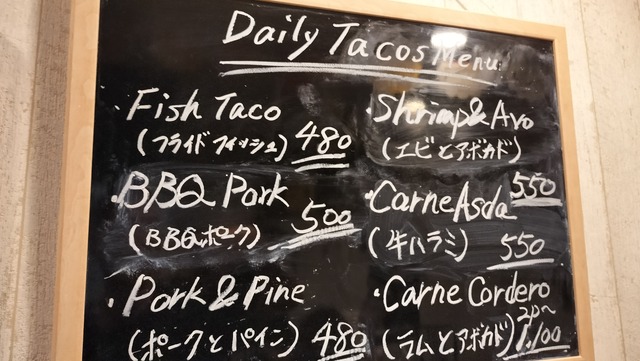 Daily Tacos Menu
・Fish Taco
(フライドフィッシュ) 480
・BBQ Pork
(BBQポーク) 500
・Pork & Pine
(ポークとパイン) 480
・Shrimp & Avo
(エビとアボカド)
550
・Carne Asda
(牛ハラミ) 550
・Carne Cordero
(ラムとアボカド) 2p〜
1,100